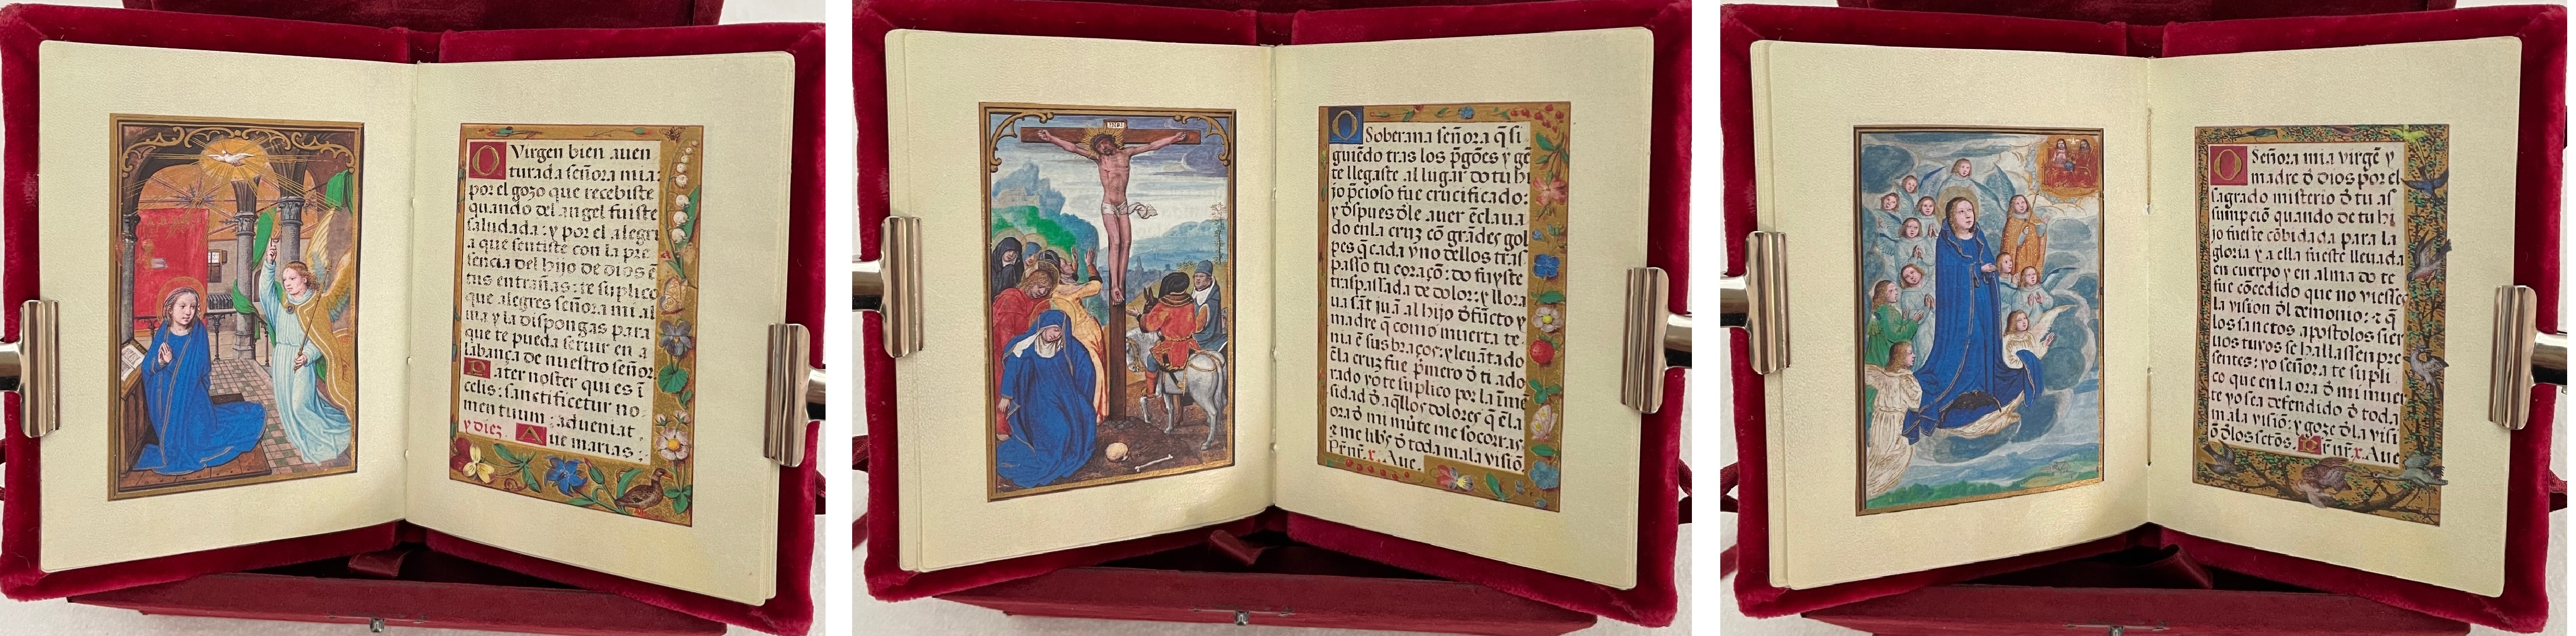 O Virgen bien auen
turada señora mia:
por el gozo que recebiste
quando del angel fuiste
saludada: y por el alegri
a que sentiste con la pre
sencia del hijo de dios ẽ
tus entrañas: te suplico
que alegres señora mi al
ma y la dispongas para
que te pueda seruir en a
labança de nuestro señor.
Pater noster qui es ĩ
celis: sanctificetur no
men tuum: adueniat.
y diez. Aue marias:
INRI
O Soberana señora q̃ si
guiẽdo tras los p̃gões y gẽ
te llegaste al lugar do tu hi
jo p̃cioso fue crucificado:
y d̃spues d̃le auer ẽclaua
do enla cruz cõ grãdes gol
pes q̃ cada vno dellos tras
passo tu coraçõ: do fuyste
traspassada de dolor: y llora
ua sãt juã al hijo d̃fũcto y
madre q̃ como muerta te
ma ẽ sus braços: y leuãtado
ẽla cruz fue p̃mero d̃ ti ado
rado yo te suplico por la ĩmẽ
sidad d̃ aq̃llos dolores q̃ ẽla
ora d̃ mi muẽte me socorras
z me libr̃ d̃ toda mala visiõ
Pr̃ nr̃. x. Aue
O Señora mia virgẽ y
madre d̃ dios por el
sagrado misterio d̃ tu as
sumpciõ quando de tu hi
jo fueste cõbidada para la
gloria y a ella fueste lleuada
en cuerpo y en alma do te
fue cõcedido que no viesses
la vision d̃l demonio: z q̃
los sanctos apostolos sier
uos tuyos se hallassen pre
sentes: yo señora te supli
co que en la ora d̃ mi muer
te yo sea defendido d̃ toda
mala visiõ: y goze d̃la visi
õ d̃los sctõs. Pr̃ nr̃. x. Aue